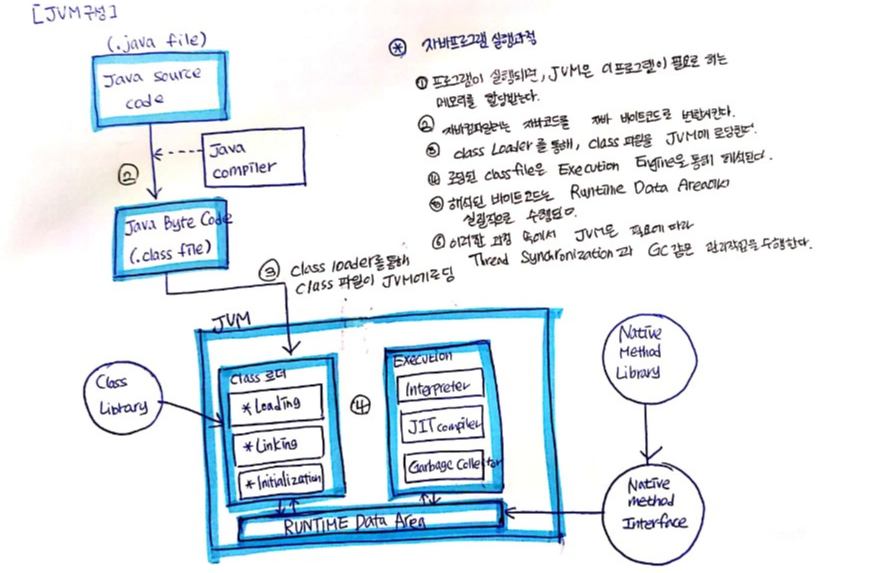 [JVM구성]
(.java file)
Java source
code
②
Java
compiler
Java Byte Code
(.class file)
③ class loader를 통해
class 파일이 JVM에 로딩
⊛ 자바프로그램 실행과정
① 프로그램이 실행되면, JVM은 이 프로그램이 필요로 하는
메모리를 할당받는다.
② 자바컴파일러는 자바코드를 자바 바이트코드로 변환시킨다.
③ class Loader를 통해, class 파일을 JVM에 로딩한다.
④ 로딩된 classfile은 Execution Engine을 통해 해석된다.
⑤ 해석된 바이트코드는 Runtime Data Area에서
실질적으로 수행된다.
⑥ 이러한 과정 속에서 JVM은 필요에 따라
Thread Synchronization과 GC같은 관리작업을 수행한다.
JVM
Class
Library
Class 로더
*Loading
*Linking
*Initialization
④
Execution
Interpreter
JIT compiler
Garbage Collector
RUNTIME Data Area
Native
Method
Library
Native
method
Interface